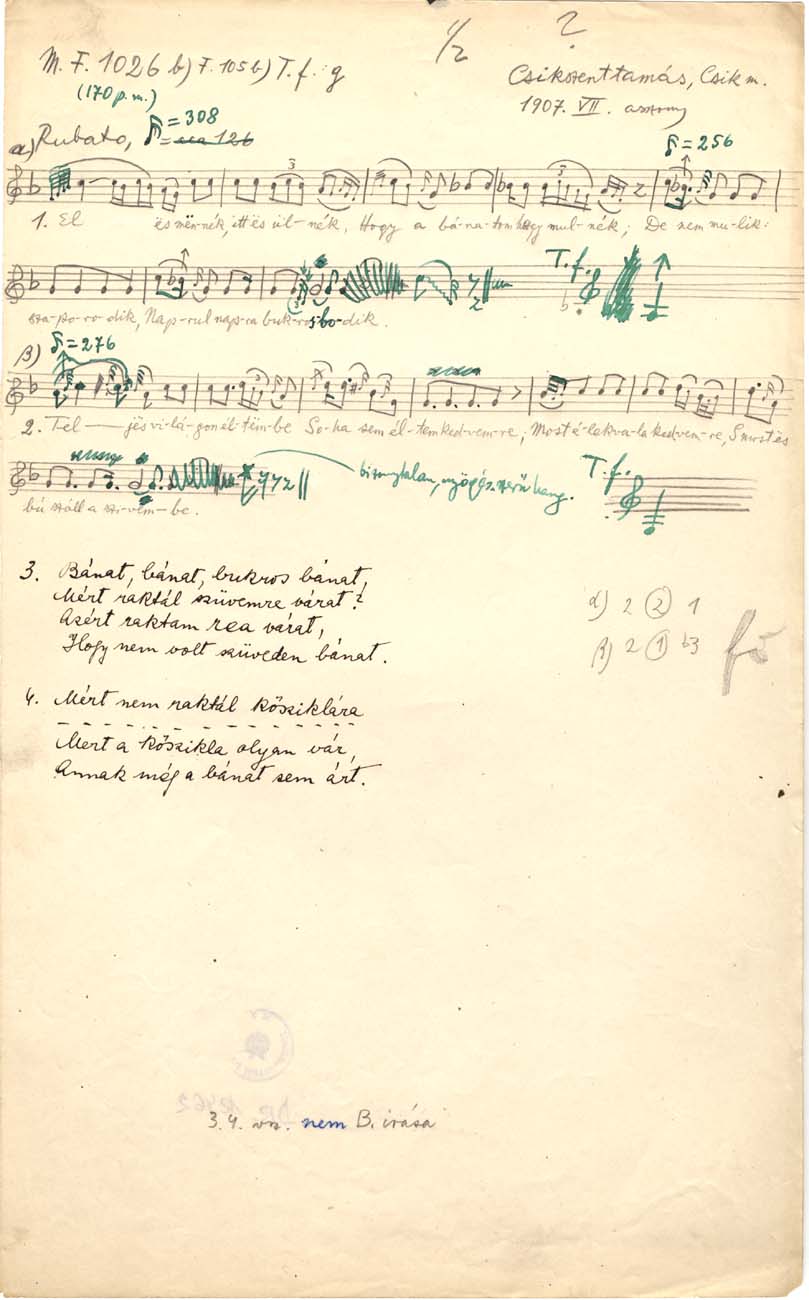 1/2 ?
M. F. 1026 b) F. 105 b) T. f. : g
Csikszenttamás, Csik m.
(170 p.m.)
1907. VII. asszony
a) Rubato, = 308
= cca 126
= 256
3 3
1. El és mën-nék, itt és ül-nék, Hogy a bá-na-tom hogy mul-nék; De nem mu-lik:
T. f.
sza-po-ro-dik, Nap-rul nap-ra buk-ro-sbo-dik.
β) = 276
2. Tel — jës vi-lá-gon él-tëm-be So-ha sem él-tem ked-vem-re; Most é-lek va-la ked-vem-re, S most és
bizonytalan, nyögésszerű hang.
T. f.
bú száll a szi-vem-be.
3. Bánat, bánat, bukros bánat,
Mért raktál szüvemre várat?
Azért raktam rea várat,
Hogy nem volt szüveden bánat.
α) 2 2 1
β) 2 1 b3
fő
4. Mért nem raktál kősziklára
- - - - - - - - - - - - - - -
Mert a kőszikla olyan vár,
Annak még a bánat sem árt.
3. 4. vsz. nem B. irása